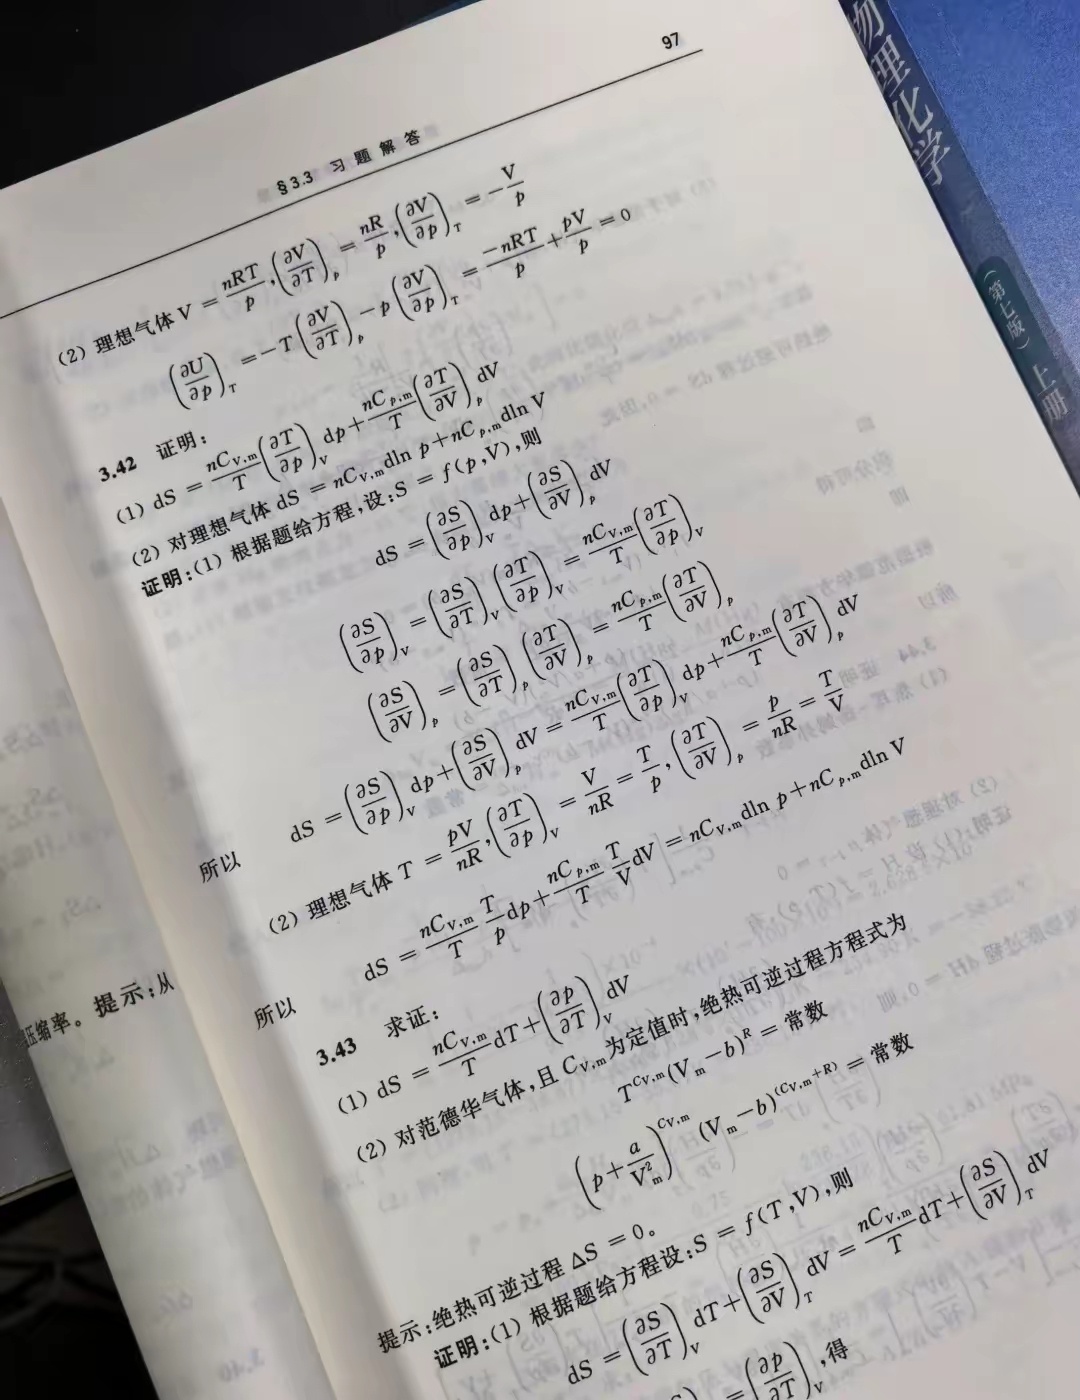 97
§3.3 习题解答
(2) 理想气体 V = nRT/p, (∂V/∂T)_p = nR/p, (∂V/∂p)_T = -V/p
(∂U/∂p)_T = -T(∂V/∂T)_p - p(∂V/∂p)_T = -nRT/p + pV/p = 0
3.42 证明:
(1) dS = nC_V,m/T (∂T/∂p)_V dp + nC_p,m/T (∂T/∂V)_p dV
(2) 对理想气体 dS = nC_V,m dln p + nC_p,m dln V
证明:(1) 根据题给方程,设:S = f(p,V),则
dS = (∂S/∂p)_V dp + (∂S/∂V)_p dV
(∂S/∂p)_V = (∂S/∂T)_V (∂T/∂p)_V = nC_V,m/T (∂T/∂p)_V
(∂S/∂V)_p = (∂S/∂T)_p (∂T/∂V)_p = nC_p,m/T (∂T/∂V)_p
所以 dS = (∂S/∂p)_V dp + (∂S/∂V)_p dV = nC_V,m/T (∂T/∂p)_V dp + nC_p,m/T (∂T/∂V)_p dV
(2) 理想气体 T = pV/nR, (∂T/∂p)_V = V/nR = T/p, (∂T/∂V)_p = p/nR = T/V
所以 dS = nC_V,m/T T/p dp + nC_p,m/T T/V dV = nC_V,m dln p + nC_p,m dln V
3.43 求证:
(1) dS = nC_V,m/T dT + (∂p/∂T)_V dV
(2) 对范德华气体,且 C_V,m 为定值时,绝热可逆过程方程式为
T^C_V,m (V_m - b)^R = 常数
(p + a/V_m^2)^C_V,m (V_m - b)^(C_V,m + R) = 常数
提示:绝热可逆过程 ΔS = 0。
证明:(1) 根据题给方程设:S = f(T,V),则
dS = (∂S/∂T)_V dT + (∂S/∂V)_T dV = nC_V,m/T dT + (∂S/∂V)_T dV
= (∂p/∂T)_V,得
压缩率。提示:从
物理化学
(第七版)
上册